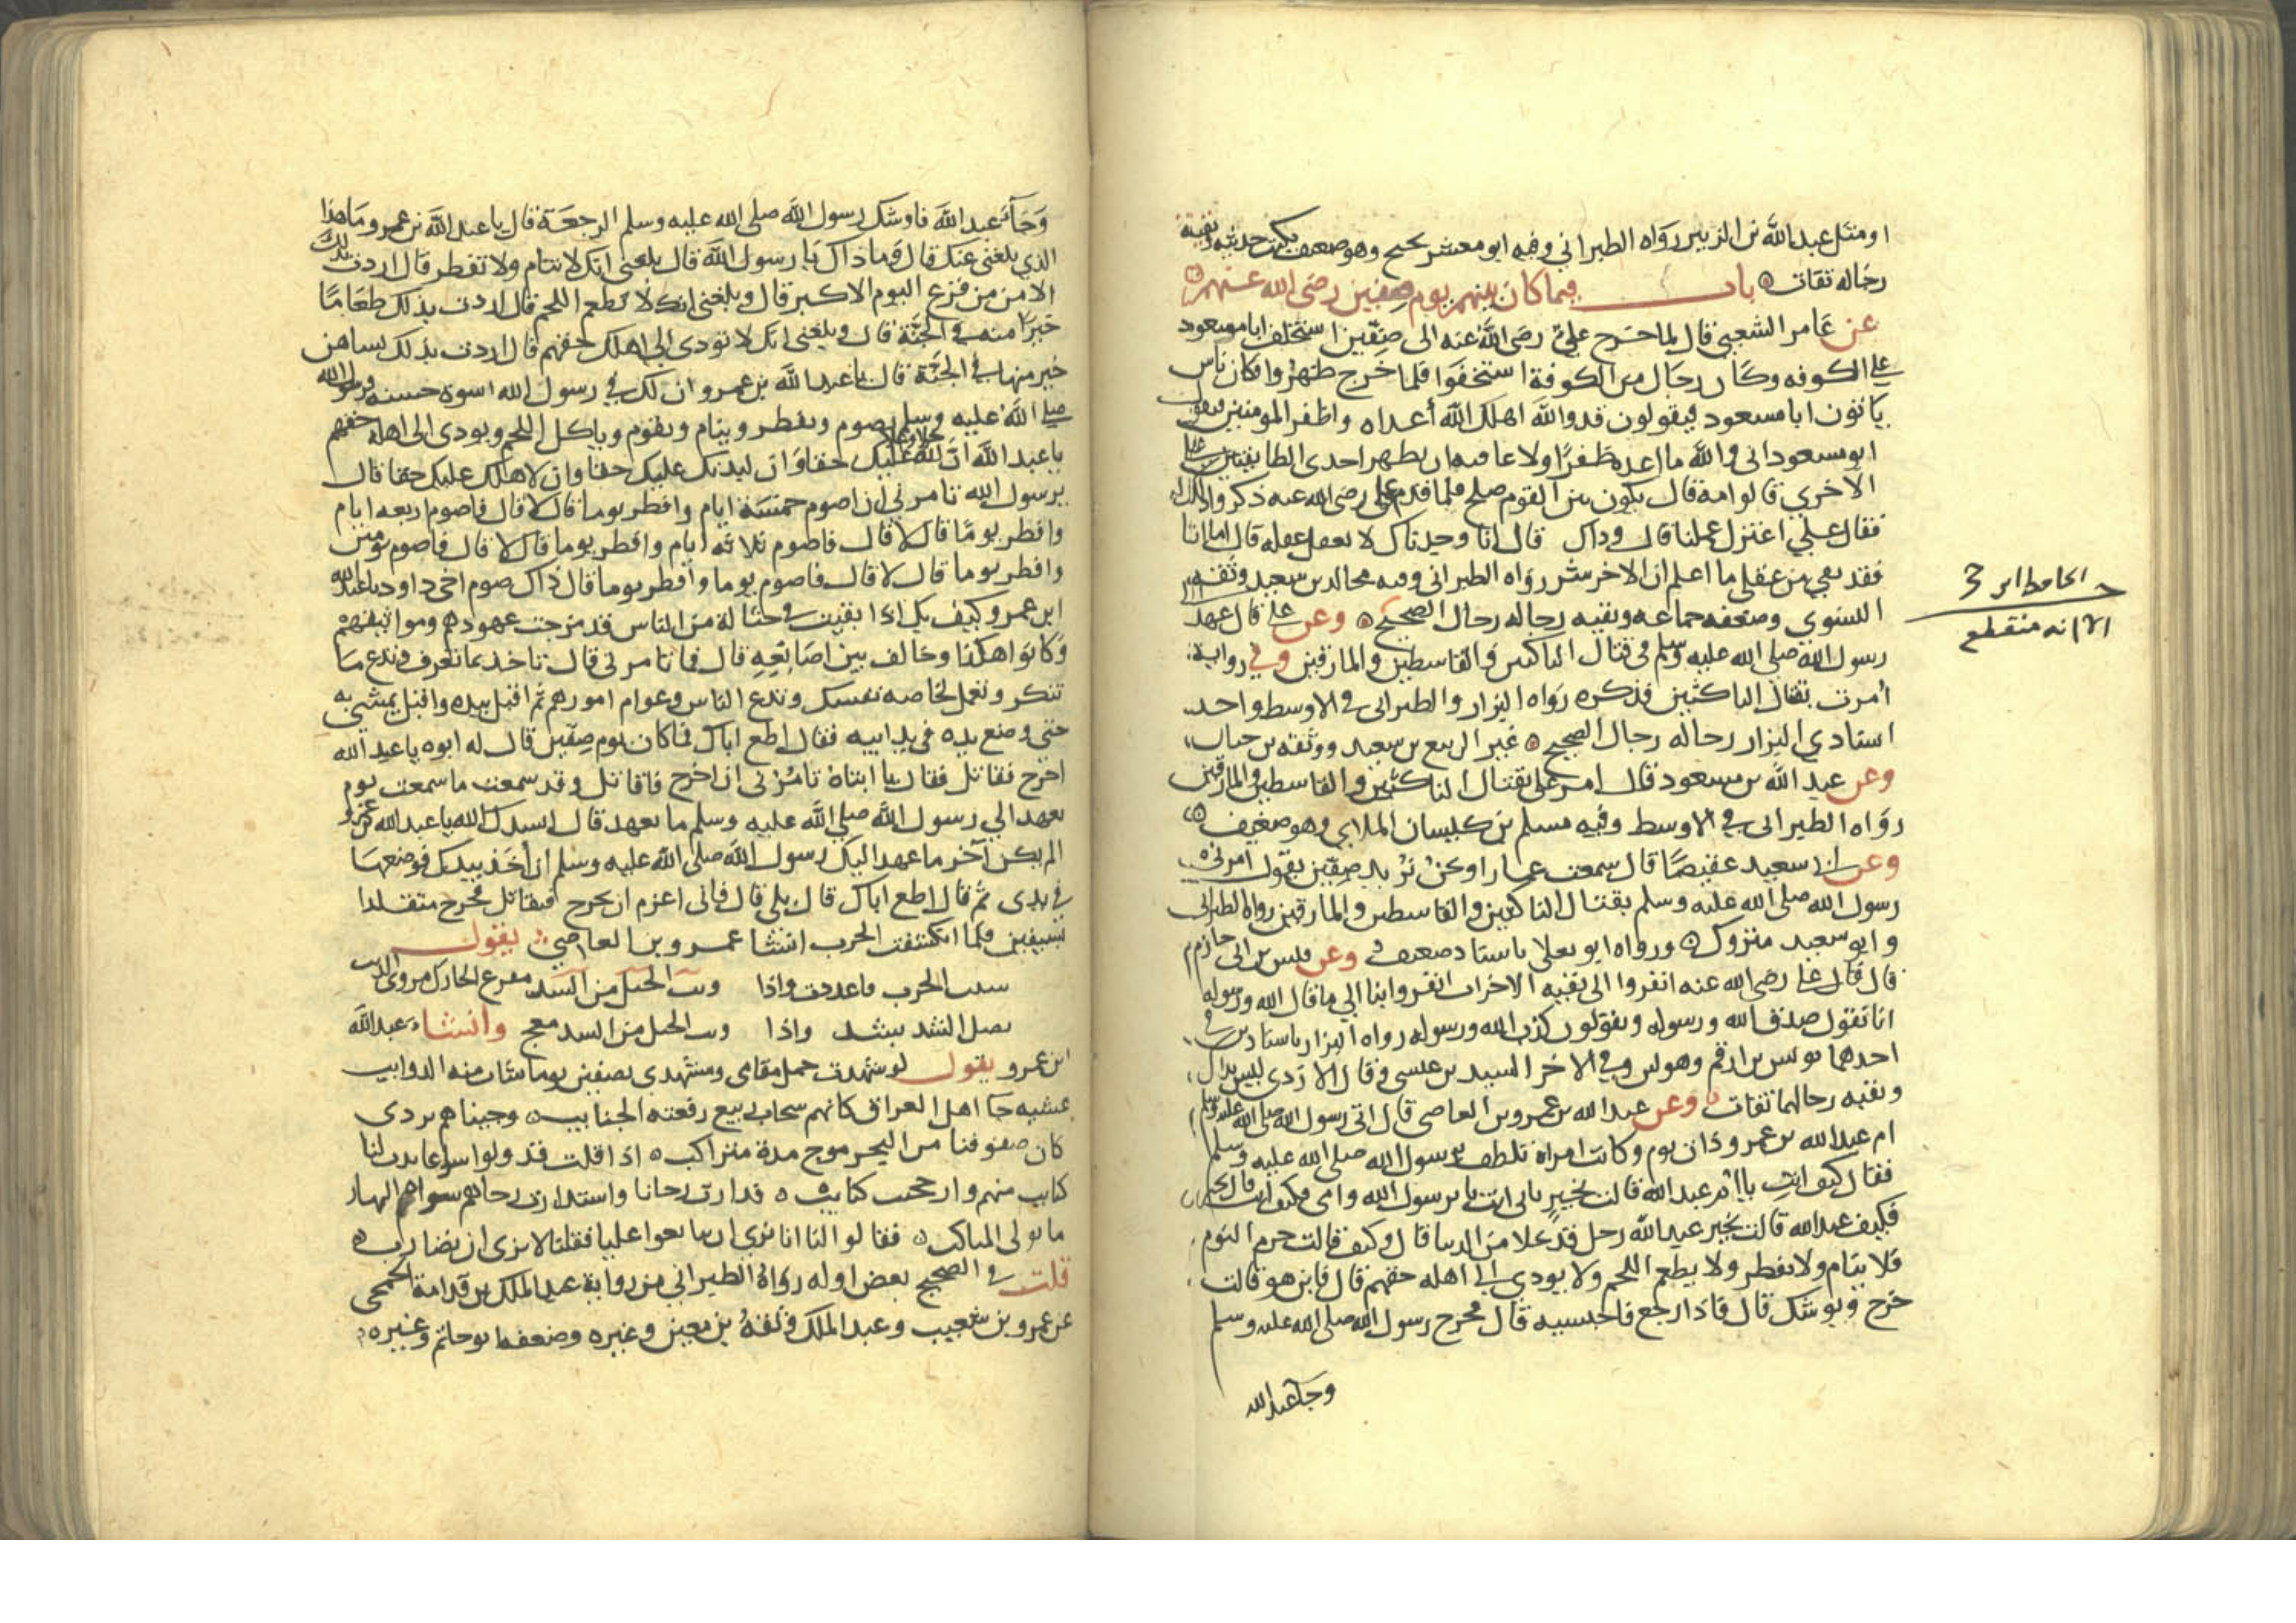 او مثل عبد الله بن الزبير رواه الطبراني وفيه ابو معشر نجيح وهو ضعيف يكتب حديثه وبقية
رجاله ثقات باب فيما كان بينهم يوم صفين رضى الله عنهم
عن عامر الشعبي قال لما خرج علي رضى الله عنه الى صفين استخلف ابا مسعود
على الكوفه وكان رجال من الكوفة استخفوا فلما خرج ظهروا فكان ناس
ياتون ابا مسعود فيقولون قد والله اهلك الله أعداه واظفر المومنين فيقول
ابو مسعود انى والله ما اعده ظفرا ولا عافيه ان يظهر احدى الطايفتين على
الاخرى قالوا فمه قال يكون بين القوم صلح فلما قدم على رضى الله عنه ذكروا ذلك له
فقال علي اعتزل عملنا قال وذاك قال انا وجدناك لا تعقل عقله قال اما انا
فقد بقي من عقلى ما اعلم ان الاخر شر رواه الطبرانى وفيه مجالد بن سعيد وثقه
النسوى وضعفه جماعه وبقيه رجاله رجال الصحيح وعن على قال عهد
رسول الله صلى الله عليه وسلم فى قتال الناكثين والقاسطين والمارقين وفي رواية
أمرت بقتال الناكثين فذكره رواه البزار والطبرانى فى الاوسط واحد
اسنادي البزار رجاله رجال الصحيح غير الربيع بن سعيد ووثقه بن حبان
وعن عبد الله بن مسعود قال امر على بقتال الناكثين والقاسطين والمارقين
رواه الطبرانى فى الاوسط وفيه مسلم بن كيسان الملاي وهو ضعيف
وعن ابى سعيد عقيصا قال سمعت عمارا ونحن نريد صفين يقول امرنى
رسول الله صلى الله عليه وسلم بقتال الناكثين والقاسطين والمارقين رواه الطبرانى
وابو سعيد متروك ورواه ابو يعلا باسناد ضعيف وعن قيس بن ابى حازم
قال قال على رضى الله عنه انفروا الى بقيه الاحزاب انفروا بنا الى ما قال الله ورسوله
انا نقول صدق الله ورسوله ويقولون كذب الله ورسوله رواه البزار باسنادين فى
احدهما يونس بن ارقم وهو لين وفى الاخر السيد بن عيسى وقال الازدى ليس بذاك
وبقيه رجالهما ثقات وعن عبد الله بن عمرو بن العاصى قال اتى رسول الله صلى الله عليه وسلم
ام عبد الله بن عمرو ذات يوم وكانت امراة تلطف برسول الله صلى الله عليه وسلم
فقال كيف انت يا ام عبد الله قالت بخير بابى انت يا رسول الله وامى فكيف انت قال بخير
فكيف عبد الله قالت بخير عبد الله رجل قد علا من الدنيا قال وكيف قالت حرم النوم
فلا ينام ولا يفطر ولا يطعم اللحم ولا يودي الى اهله حقهم قال فاين هو قالت
خرج ويوشك قال فاذا رجع فاحبسيه قال فخرج رسول الله صلى الله عليه وسلم
وجآء عبد الله
الا انه منقطع
وجآء عبد الله فاوشك رسول الله صلى الله عليه وسلم الرجعة فقال يا عبد الله بن عمرو ما هذا
الذي بلغنى عنك قال وما ذاك يا رسول الله قال بلغنى انك لا تنام ولا تفطر قال اردت بذلك
الامن من فزع اليوم الاكبر قال وبلغنى انك لا تطعم اللحم قال اردت بذلك طعاما
خيرا منه فى الجنة قال وبلغنى انك لا تودى الى اهلك حقهم قال اردت بذلك نسا هن
خير منها فى الجنة قال يا عبد الله بن عمرو ان لك في رسول الله اسوة حسنه فرسول الله
صلى الله عليه وسلم يصوم ويفطر وينام ويقوم وياكل اللحم ويودى الى اهله حقهم
يا عبد الله ان لله عليك حقا وان لبدنك عليك حقا وان لاهلك عليك حقا قال
يرسول الله تامرني ان اصوم خمسة ايام وافطر يوما قال لا قال فاصوم اربعه ايام
وافطر يوما قال لا قال فاصوم ثلاثه ايام وافطر يوما قال لا قال فاصوم يومين
وافطر يوما قال لا قال فاصوم يوما وافطر يوما قال ذاك صوم اخى داود يا عبد الله
ابن عمرو كيف بك اذا بقيت فى حثالة من الناس قد مرجت عهودهم ومواثيقهم
وكانوا هكذا وخالف بين اصابعه قال فما تامرنى قال تاخذ بما تعرف وتدع ما
تنكر وتعمل لخاصه نفسك وتدع الناس وعوام امورهم ثم اقبل بيده واقبل يمشي به
حتى وضع يده فى يد ابيه فقال اطع اباك فلما كان يوم صفين قال له ابوه يا عبد الله
اخرج فقاتل فقال يا ابتاه تامرنى ان اخرج فاقاتل وقد سمعت ما سمعت يوم
يعهد الي رسول الله صلى الله عليه وسلم ما يعهد قال انشدك الله يا عبد الله بن عمرو
الم يكن آخر ما عهد اليك رسول الله صلى الله عليه وسلم ان أخذ بيدك فوضعها
فى يدى ثم قال اطع اباك قال بلى قال فانى اعزم ان تخرج فتقاتل فخرج متقلدا
بسيفين فلما انكشفت الحرب انشا عمرو بن العاصي يقول
شبت الحرب فاعددت واذا وثب الخيل من الشد معج وانشاء عبد الله
ابن عمرو يقول لو شهدت جمل مقامى ومشهدى بصفين يوما شاب منه الذوايب
عشيه جا اهل العراق كانهم سحاب ربيع رفعته الجنايب وجيناهم نردى
كان صفوفنا من البحر موج مدة متراكب اذا قلت قد ولوا سراعا بدت لنا
كتايب منهم وارجحنت كتايب فدارت رحانا واستدارت رحاهم سراة النهار
ما تولى المناكب فقالوا لنا انا نرى ان تبايعوا عليا فقلنا لا نرى ان نضارب
قلت فى الصحيح بعض اوله رواه الطبراني من رواية عبد الملك بن قدامة الجمحى
عن عمرو بن شعيب وعبد الملك وثقه بن معين وغيره وضعفه ابو حاتم وغيره